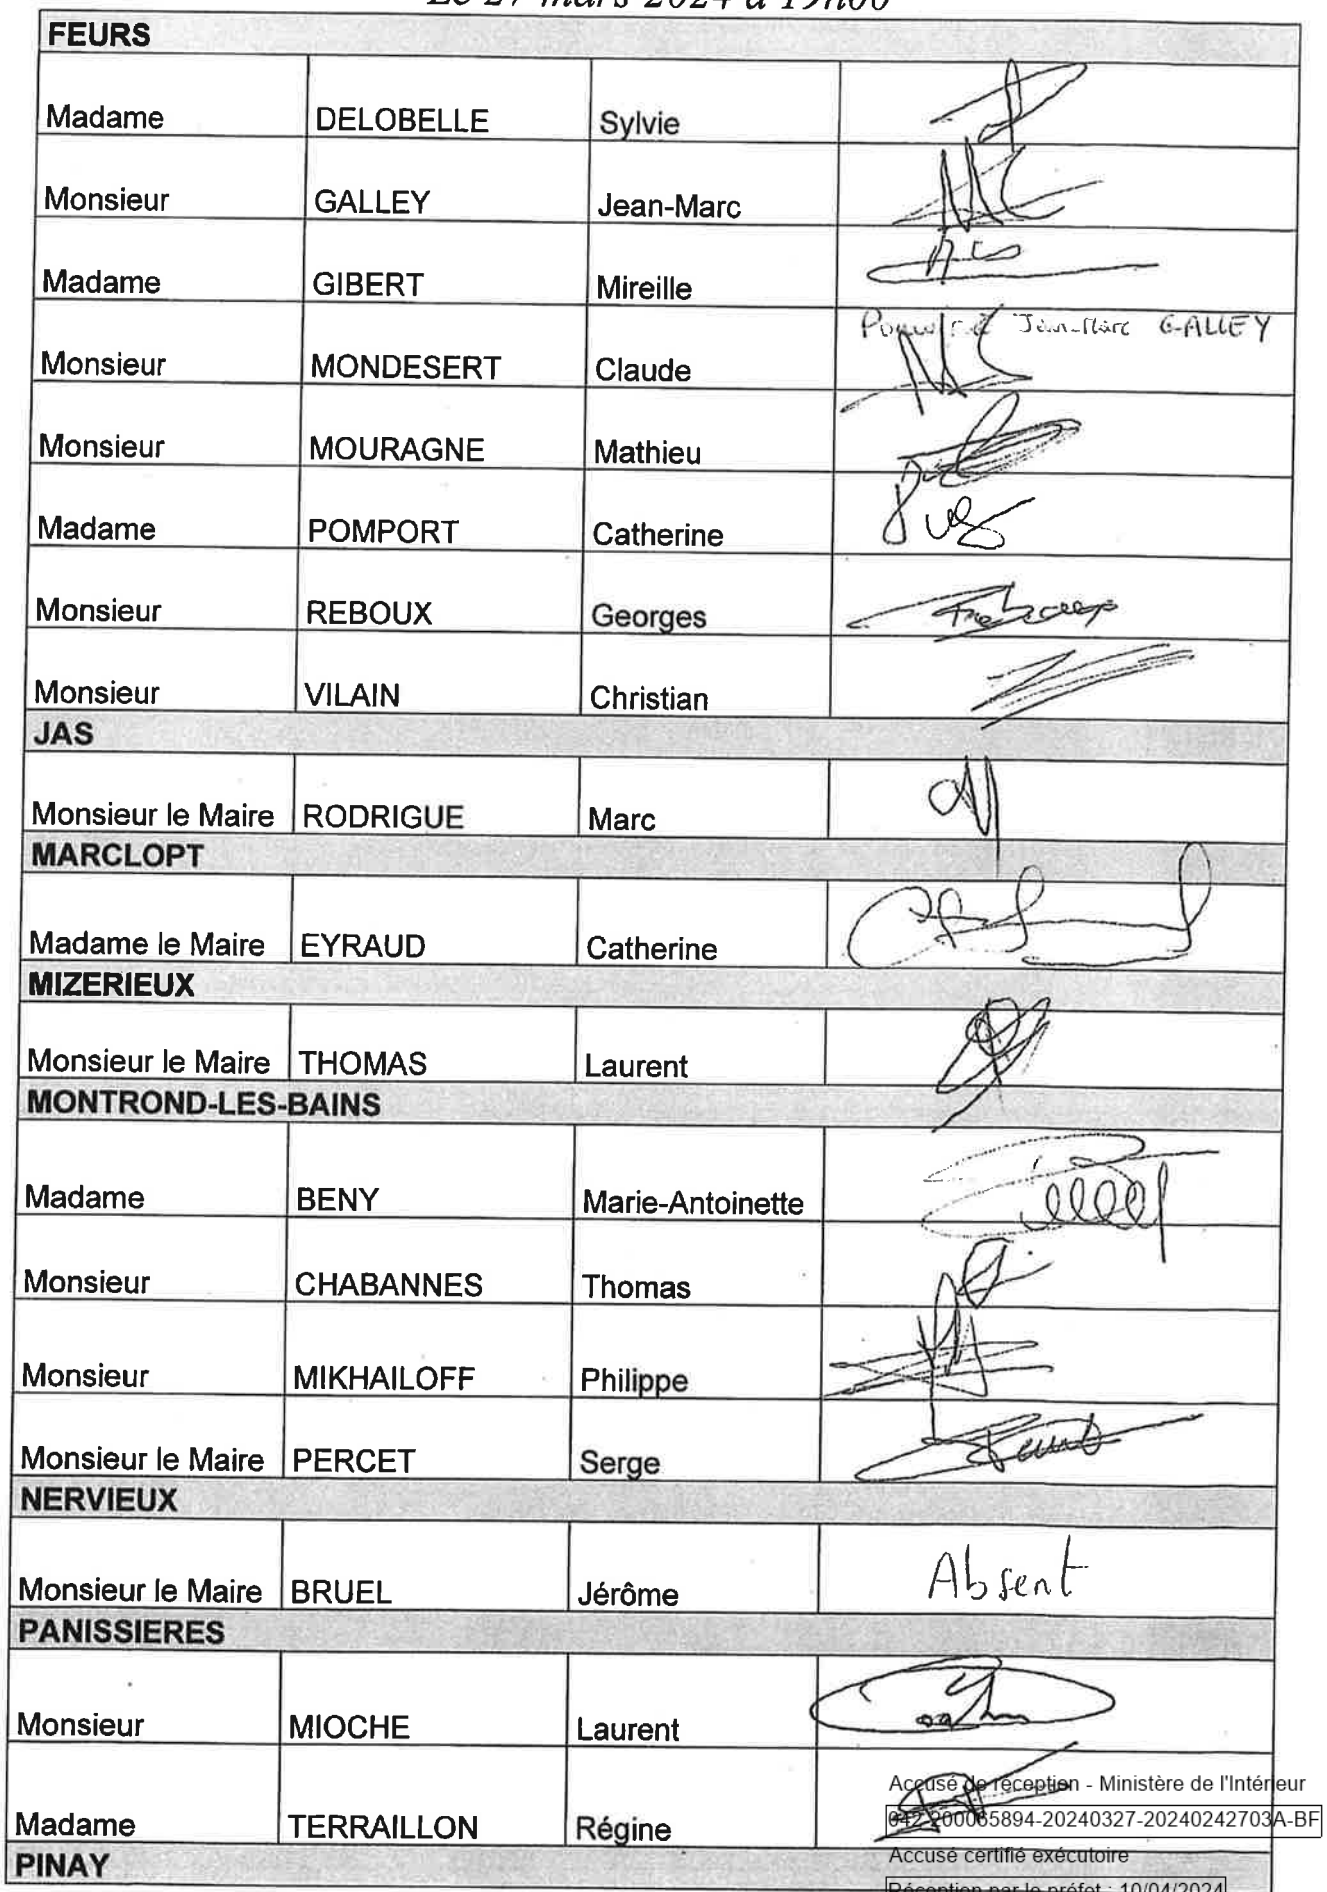 Le 27 mars 2024 à 19h00
FEURS
Madame DELOBELLE Sylvie
Monsieur GALLEY Jean-Marc
Madame GIBERT Mireille
Jean-Marc GALLEY
Monsieur MONDESERT Claude
Monsieur MOURAGNE Mathieu
Madame POMPORT Catherine
Monsieur REBOUX Georges
Monsieur VILAIN Christian
JAS
Monsieur le Maire RODRIGUE Marc
MARCLOPT
Madame le Maire EYRAUD Catherine
MIZERIEUX
Monsieur le Maire THOMAS Laurent
MONTROND-LES-BAINS
Madame BENY Marie-Antoinette
Monsieur CHABANNES Thomas
Monsieur MIKHAILOFF Philippe
Monsieur le Maire PERCET Serge
NERVIEUX
Monsieur le Maire BRUEL Jérôme Absent
PANISSIERES
Monsieur MIOCHE Laurent
Accusé de réception - Ministère de l'Intérieur
042-200065894-20240327-20240242703A-BF
Madame TERRAILLON Régine
Accusé certifié exécutoire
PINAY
Réception par le préfet : 10/04/2024